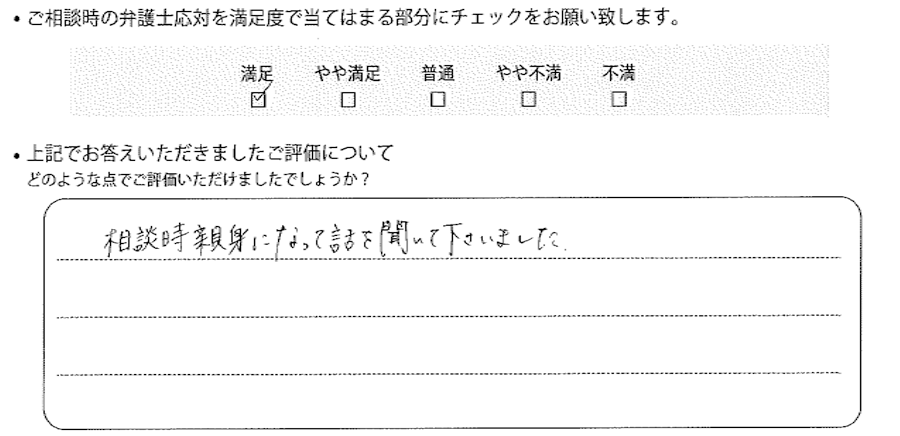 • ご相談時の弁護士応対を満足度で当てはまる部分にチェックをお願い致します。
満足 やや満足 普通 やや不満 不満
☑ ☐ ☐ ☐ ☐
• 上記でお答えいただきましたご評価について
どのような点でご評価いただけましたでしょうか？
相談時親身になって話を聞いて下さいました.